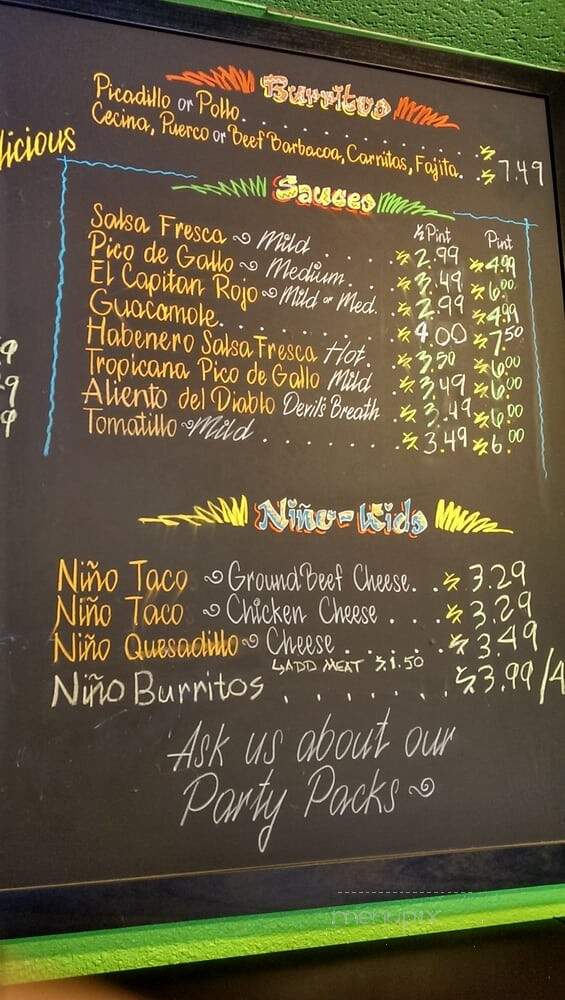 licious
Burritos
Picadillo or Pollo . . . . . . . . . . $
Cecina, Puerco or Beef Barbacoa, Carnitas, Fajita. . $ 7.49
Sauces
½ Pint Pint
Salsa Fresca ~ Mild . . . . $ 2.99 $ 4.99
Pico de Gallo ~ Medium . . . $ 3.49 $ 6.00
El Capitan Rojo ~ Mild or Med. $ 2.99 $ 4.99
Guacamole. . . . . . . . . . $ 4.00 $ 7.50
Habenero Salsa Fresca Hot. . $ 3.50 $ 6.00
Tropicana Pico de Gallo Mild . $ 3.49 $ 6.00
Aliento del Diablo Devil's Breath $ 3.49 $ 6.00
Tomatillo ~ Mild . . . . . . . $ 3.49 $ 6.00
9
9
9
Niño-Kids
Niño Taco ~ Ground Beef Cheese. . $ 3.29
Niño Taco ~ Chicken Cheese . . . $ 3.29
Niño Quesadillo ~ Cheese . . . . . . $ 3.49
↳ ADD MEAT $1.50
Niño Burritos . . . . . . $3.99/4
Ask us about our
Party Packs ~
menupix